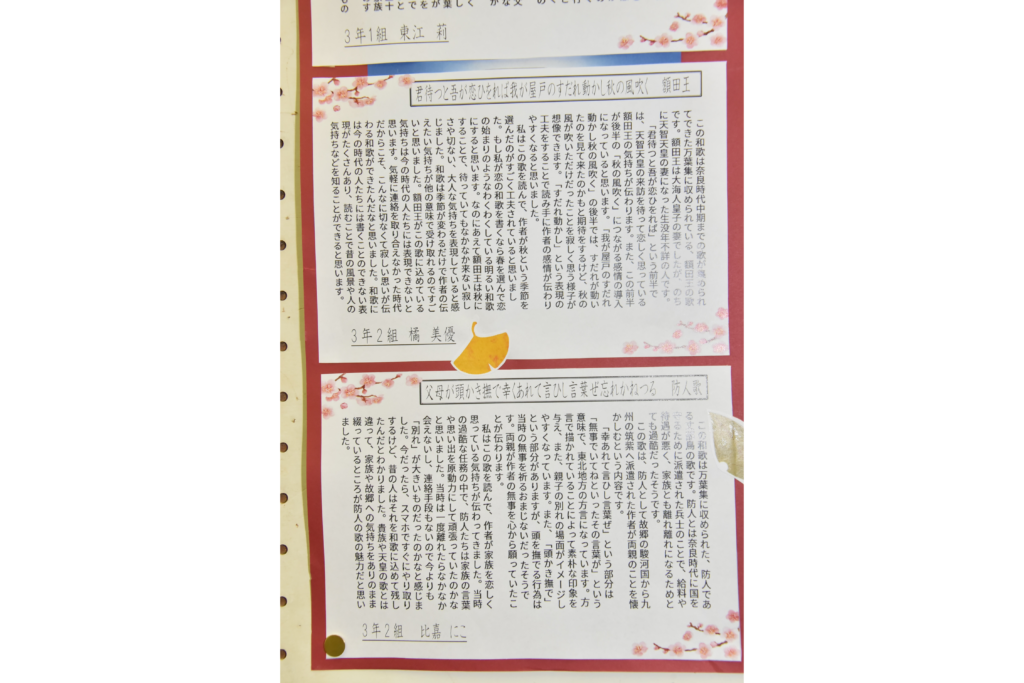 3年1組 東江 莉
君待つと吾が恋ひをれば我が屋戸のすだれ動かし秋の風吹く 額田王
この和歌は奈良時代中期までの歌が集められ
てできた万葉集に収められている、額田王の歌
です。額田王は大海人皇子の妻でしたが、のち
に天智天皇の妻になった生没年不詳の人です。
「君待つと吾が恋ひをれば」という前半で
は、天智天皇の来訪を待って恋しく思っている
額田王の気持ちが伝わります。また、この前半
が後半の「秋の風吹く」につながる感情の導入
になっていると思います。「我が屋戸のすだれ
動かし秋の風吹く」の後半では、すだれが動い
たのを見て来たのかもと期待をするけど、秋の
風が吹いただけだったことを寂しく思う様子が
想像できます。「すだれ動かし」という表現の
工夫をすることで読み手に作者の感情が伝わり
やすくなると思いました。
私はこの歌を読んで、作者が秋という季節を
選んだのがすごく工夫されていると思いまし
た。もし私が恋の和歌を書くなら春を選んで恋
の始まりのようなわくわくしている明るい和歌
にすると思います。なのにあえて額田王は秋に
することで、待っていてもなかなか来ない寂し
さや切ない、大人な気持ちを表現していると感
じました。和歌は季節が変わるだけで作者の伝
えたい気持ちが他の意味で受け取れるのですご
いと思いました。額田王がこの歌に込めている
気持ちは今の時代の人たちには表現できないと
思います。気軽に連絡を取り合えなかった時代
だからこそ、こんなに切なくて寂しい思いが伝
わる和歌ができたんだなと思いました。和歌に
は今の時代の人たちには書くことのできない表
現がたくさんあり、読むことで昔の風景や人の
気持ちなどを知ることができると思います。
3年2組 橘 美優
父母が頭かき撫で幸くあれて言ひし言葉ぜ忘れかねつる 防人歌
この和歌は万葉集に収められた、防人であ
る兵士の歌です。防人とは奈良時代に国を
守るために派遣された兵士のことで、給料や
待遇が悪く、家族とも離れ離れになるためと
ても過酷だったそうです。
この歌は、防人として故郷の駿河国から九
州の筑紫へ派遣された作者が両親のことを懐
かしむという内容です。
「幸あれて言ひし言葉ぜ」という部分は
「無事でいてねといったその言葉が」という
意味で、東北地方の方言になっています。方
言で描かれていることによって素朴な印象を
与え、また、親子の別れの場面がイメージし
やすくなっています。また、「頭かき撫で」
という部分がありますが、頭を撫でる行為は
当時の無事を祈るおまじないだったそうで
す。両親が作者の無事を心から願っていたこ
とが伝わります。
私はこの歌を読んで、作者が家族を恋しく
思っている気持ちが伝わってきました。当時
の過酷な任務の中で、防人たちは家族の言葉
や思い出を原動力にして頑張っていたのかな
と思いました。当時は一度離れたらなかなか
会えないし、連絡手段もないので今よりも
「別れ」が大きいものだったのかなと感じま
した。今だったら、スマホですぐにやり取り
するけど、昔の人はそれを和歌に込めて残し
たんだとわかりました。貴族や天皇の歌とは
違って、家族や故郷への気持ちをありのまま
綴っているところが防人の歌の魅力だと思い
ました。
3年2組 比嘉 にこ